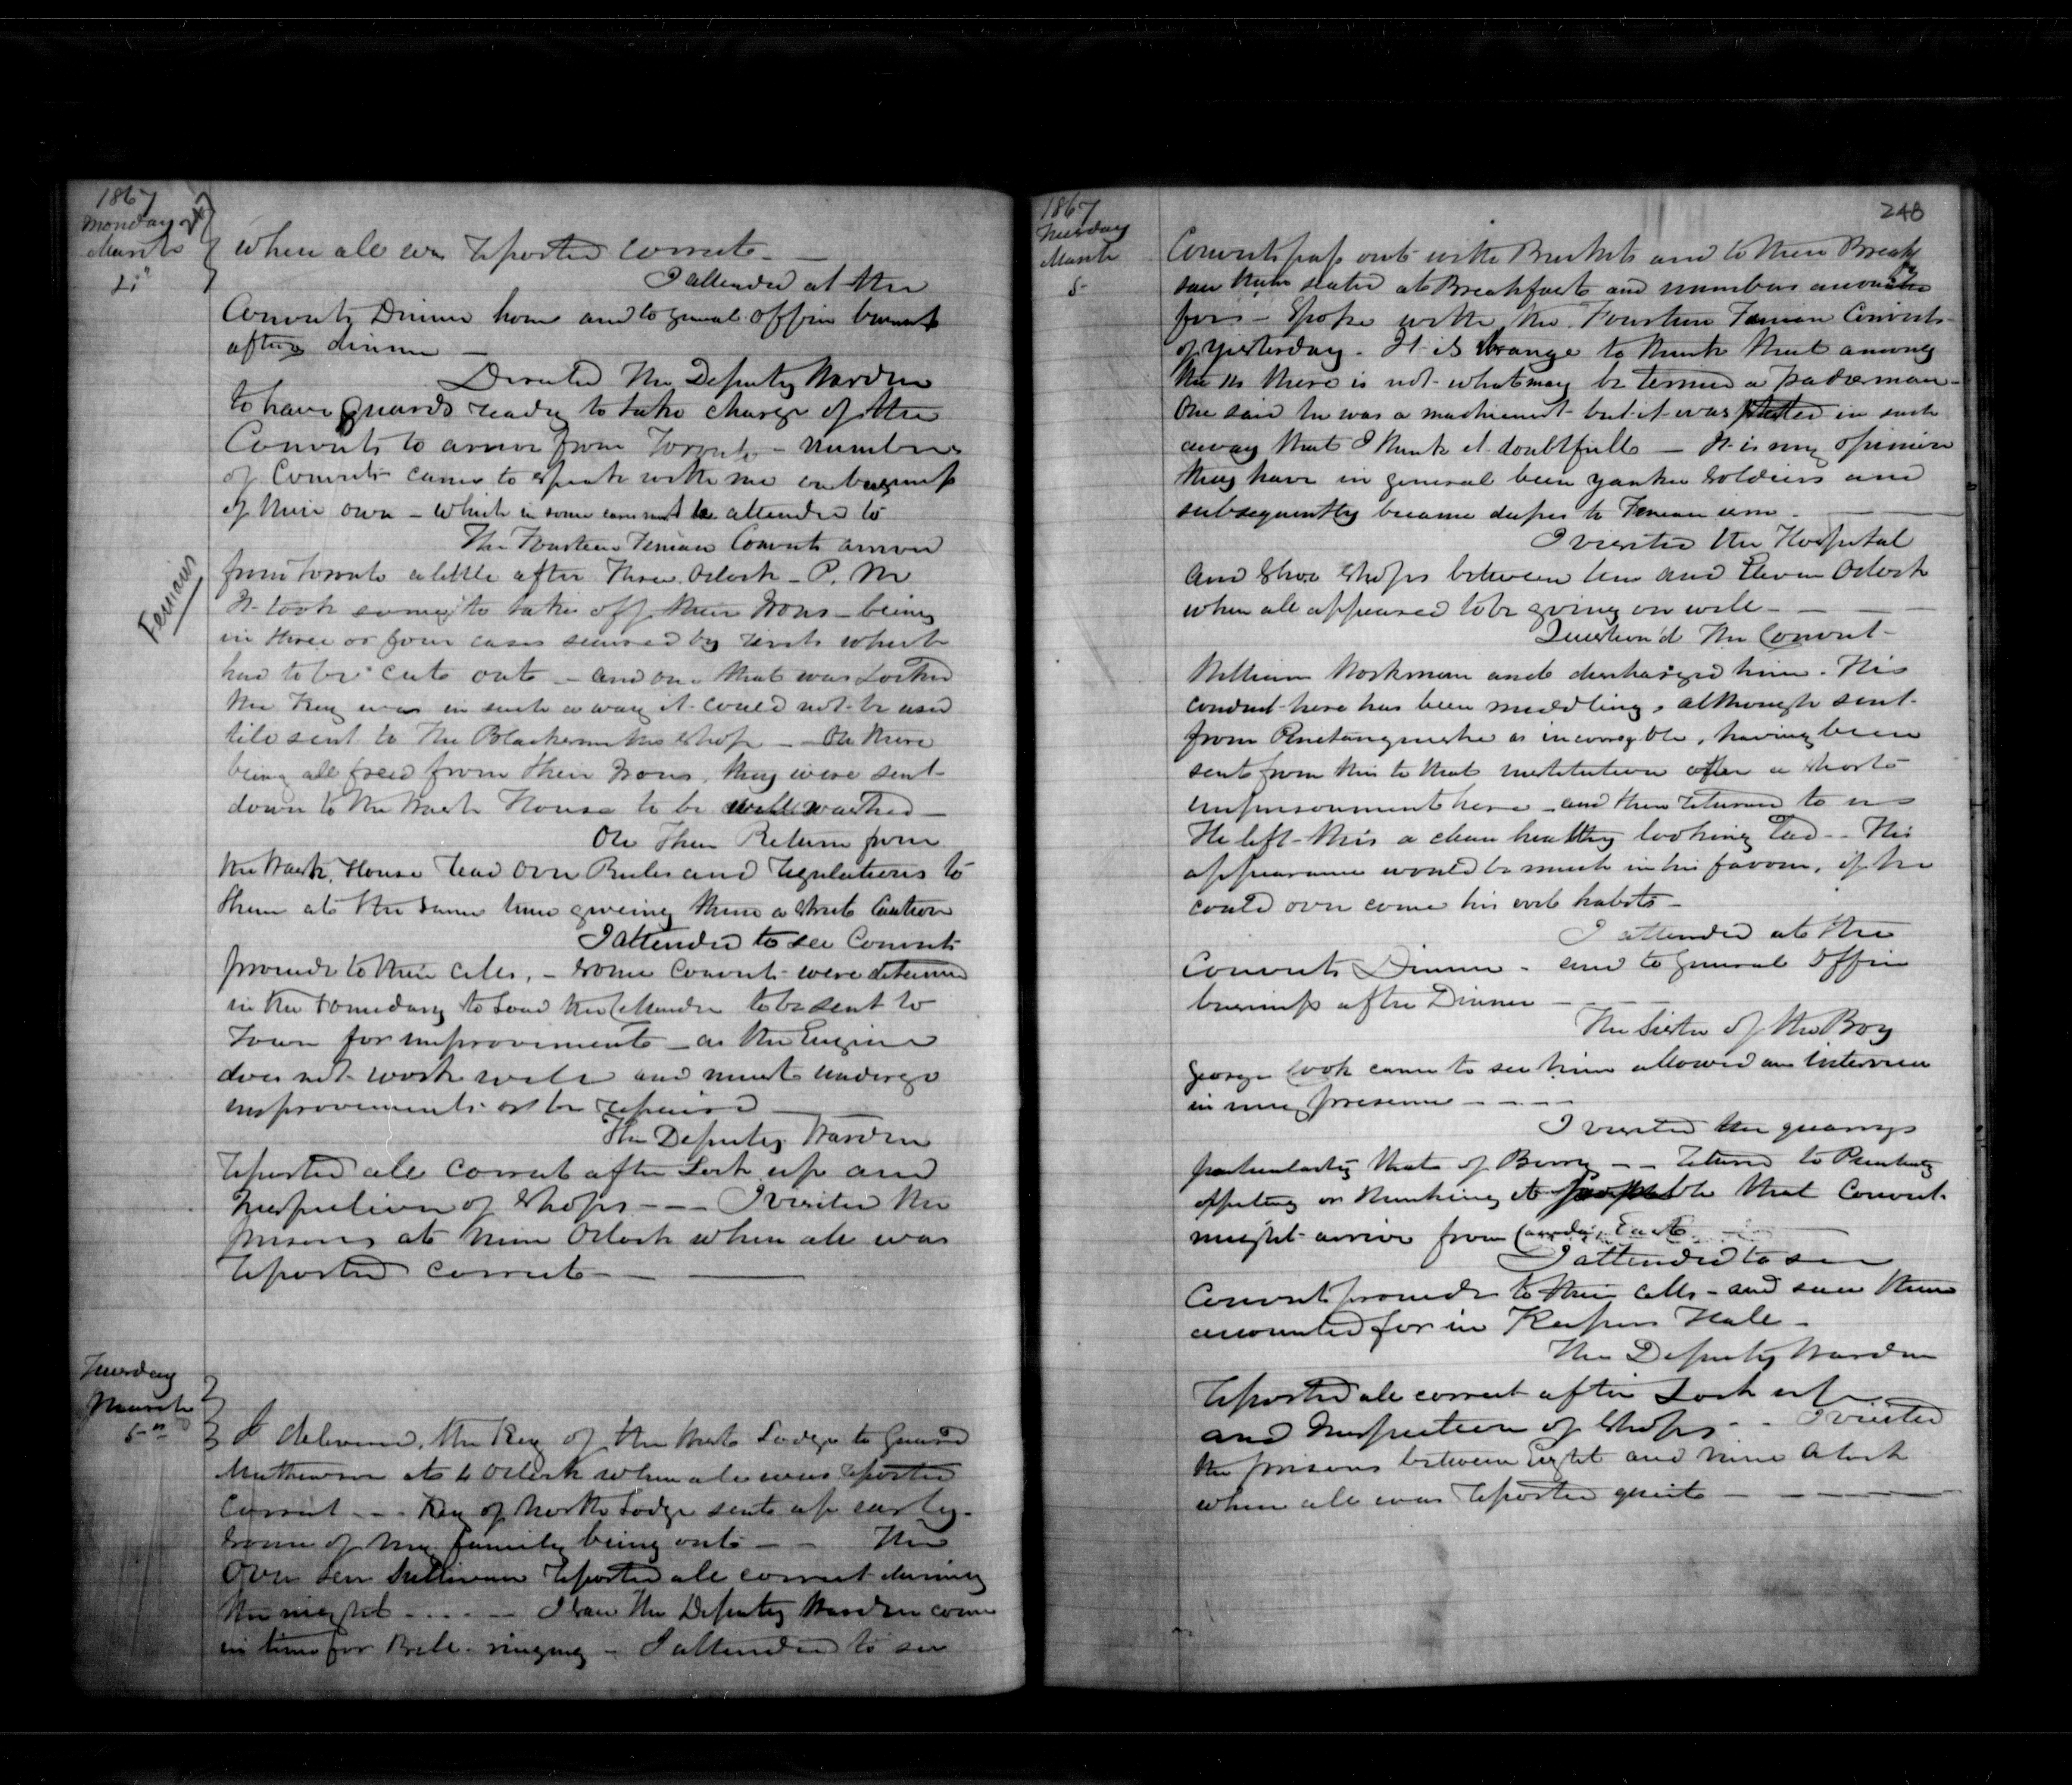 1867
247
Monday
March
4th
when all was reported correct —
I attended at the
Convicts Dinner hour and to general office business
after dinner —
Directed the Deputy Warden
to have guards ready to take charge of the
Convicts to arrive from Toronto — numbers
of Convicts came to speak with me on business
of their own — which in some cases must be attended to
The Fourteen Fenian Convicts arrived
Fenians
from Toronto a little after Three Oclock — P. M
It took some to take off their Irons — being
in three or four cases secured by rivets which
had to be cut out — and one that was Locked
the Key was in such a way it could not be used
till sent to the Blacksmiths Shop — On there
being all freed from their Irons, they were sent
down to the Wash House to be well washed —
On Their Return from
the Wash House read over Rules and regulations to
them at the same time giveing them a strict Caution
I attended to see Convicts
proceed to their cells, — some Convicts were detained
in the to load the to be sent to
Town for improvements — as the Engine
does not work well and must undergo
improvements or be repaired —
The Deputy Warden
reported all correct after Lock up and
Inspection of Shops — — — I visited the
prisons at nine Oclock when all was
reported correct — — —
Tuesday
March
5th
I delivered the Key of the West Lodge to Guard
Mathewson at 4 Oclock when all was reported
correct — — Key of North Lodge sent up early —
some of my family being out — — The
Over seer Sullivan reported all correct during
the night — — — — I saw the Deputy Warden come
in time for Bell ringing — I attended to see
1867
248
Tuesday
March
5
Convicts pass out with Buckets and to their Break
saw them seated at Breakfast and numbers accounted
for — Spoke with the Fourteen Fenian Convicts
of yesterday. It is strange to think that among
the 14 there is not what may be termed a tradesman —
One said he was a machienist but it was stated in such
a way that I think it doubtfull — It is my opinion
they have in general been yankee soldiers and
subsequently became dupes to Fenian ism —
I visited the Hospital
and Shoe Shops between ten and Eleven Oclock
when all appeared to be going on well — — —
Question'd the Convict
William Workman and discharged him. His
conduct here has been middling, although sent
from Penetanguishe as incorrigible, having been
sent from this to that institution after a short
imprisonment here — and then returned to us
He left this a clean healthy looking Lad — His
appearance would be much in his favour, if he
could over come his evil habits —
I attended at the
Convicts Dinner — and to general Office
business after Dinner — —
The Sister of the Boy
George Cook came to see him allowed an interview
in my presence — — — —
I visited the quarrys
particularly that of Berry — — returned to Penitenty
offiting or thinking it probable that Convict
might arrive from Canada East —
I attended to see
Convicts proceed to their cells — and saw them
accounted for in Keepers Hall —
The Deputy Warden
reported all correct after Lock up
and Inspection of Shops — — I visited
the prisons between Eight and nine Oclock
when all was reported quiet — — — —